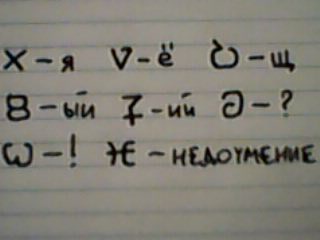 X - я V - ё Ꙋ - щ
8 - ый Ɫ - ий Ə - ?
Ѡ - ! Ҥ - недоумение